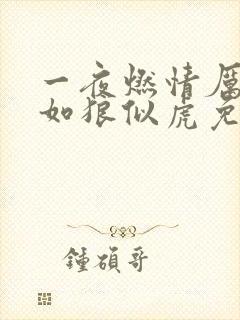 一夜燃情厲
如狼似虎免
鍾碩哥